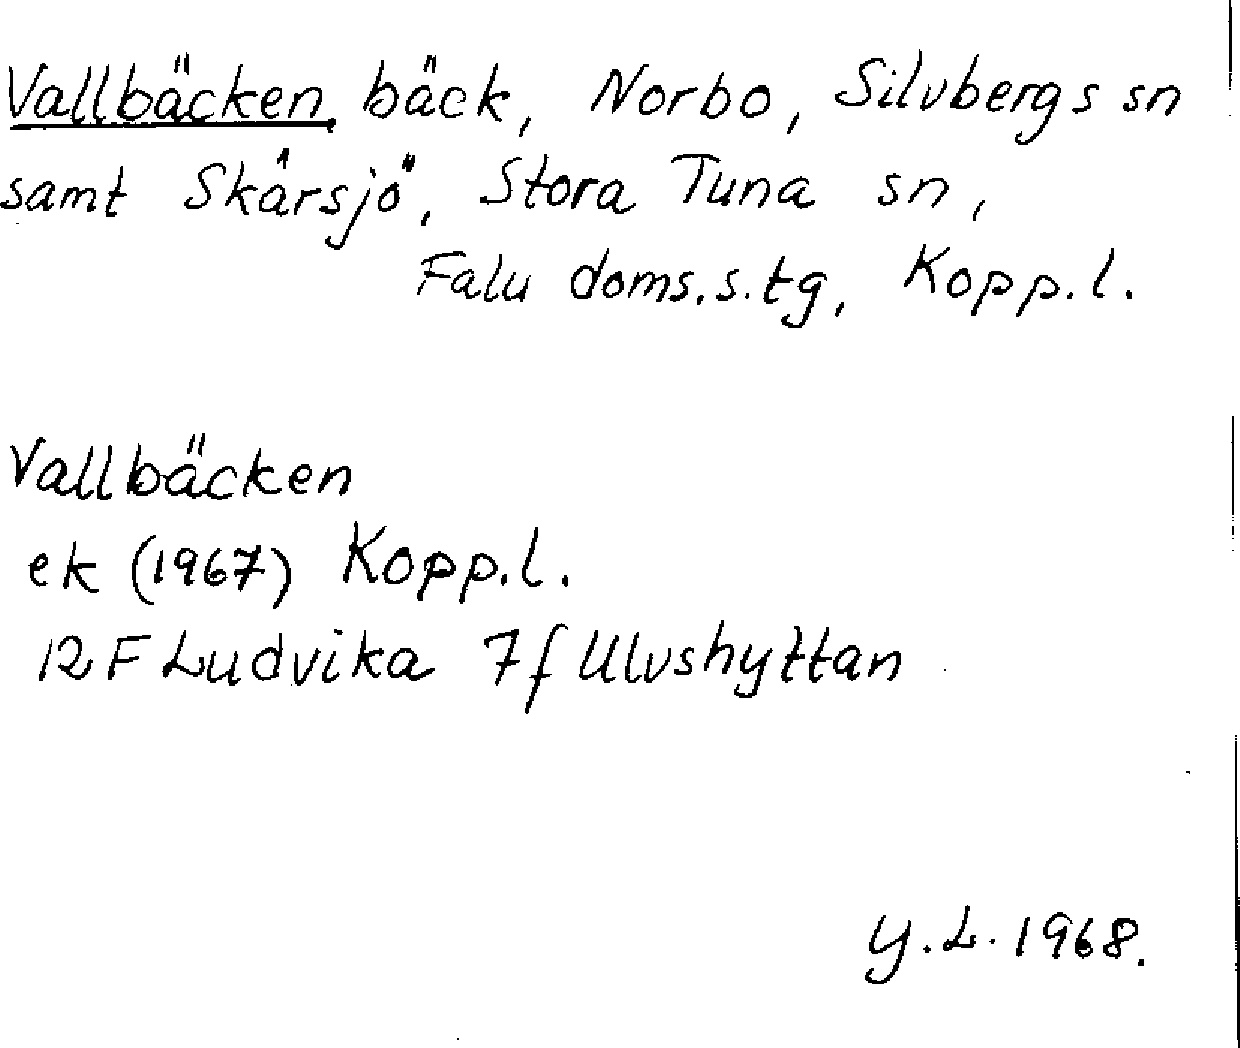 Vallbäcken, bäck, Norbo, Silvbergs sn
samt Skårsjö, Stora Tuna sn,
Falu doms.s.tg, Kopp.l.
Vallbäcken
ek (1967) Kopp.l.
12 F Ludvika 7f Ulvshyttan
Y.L. 1968.